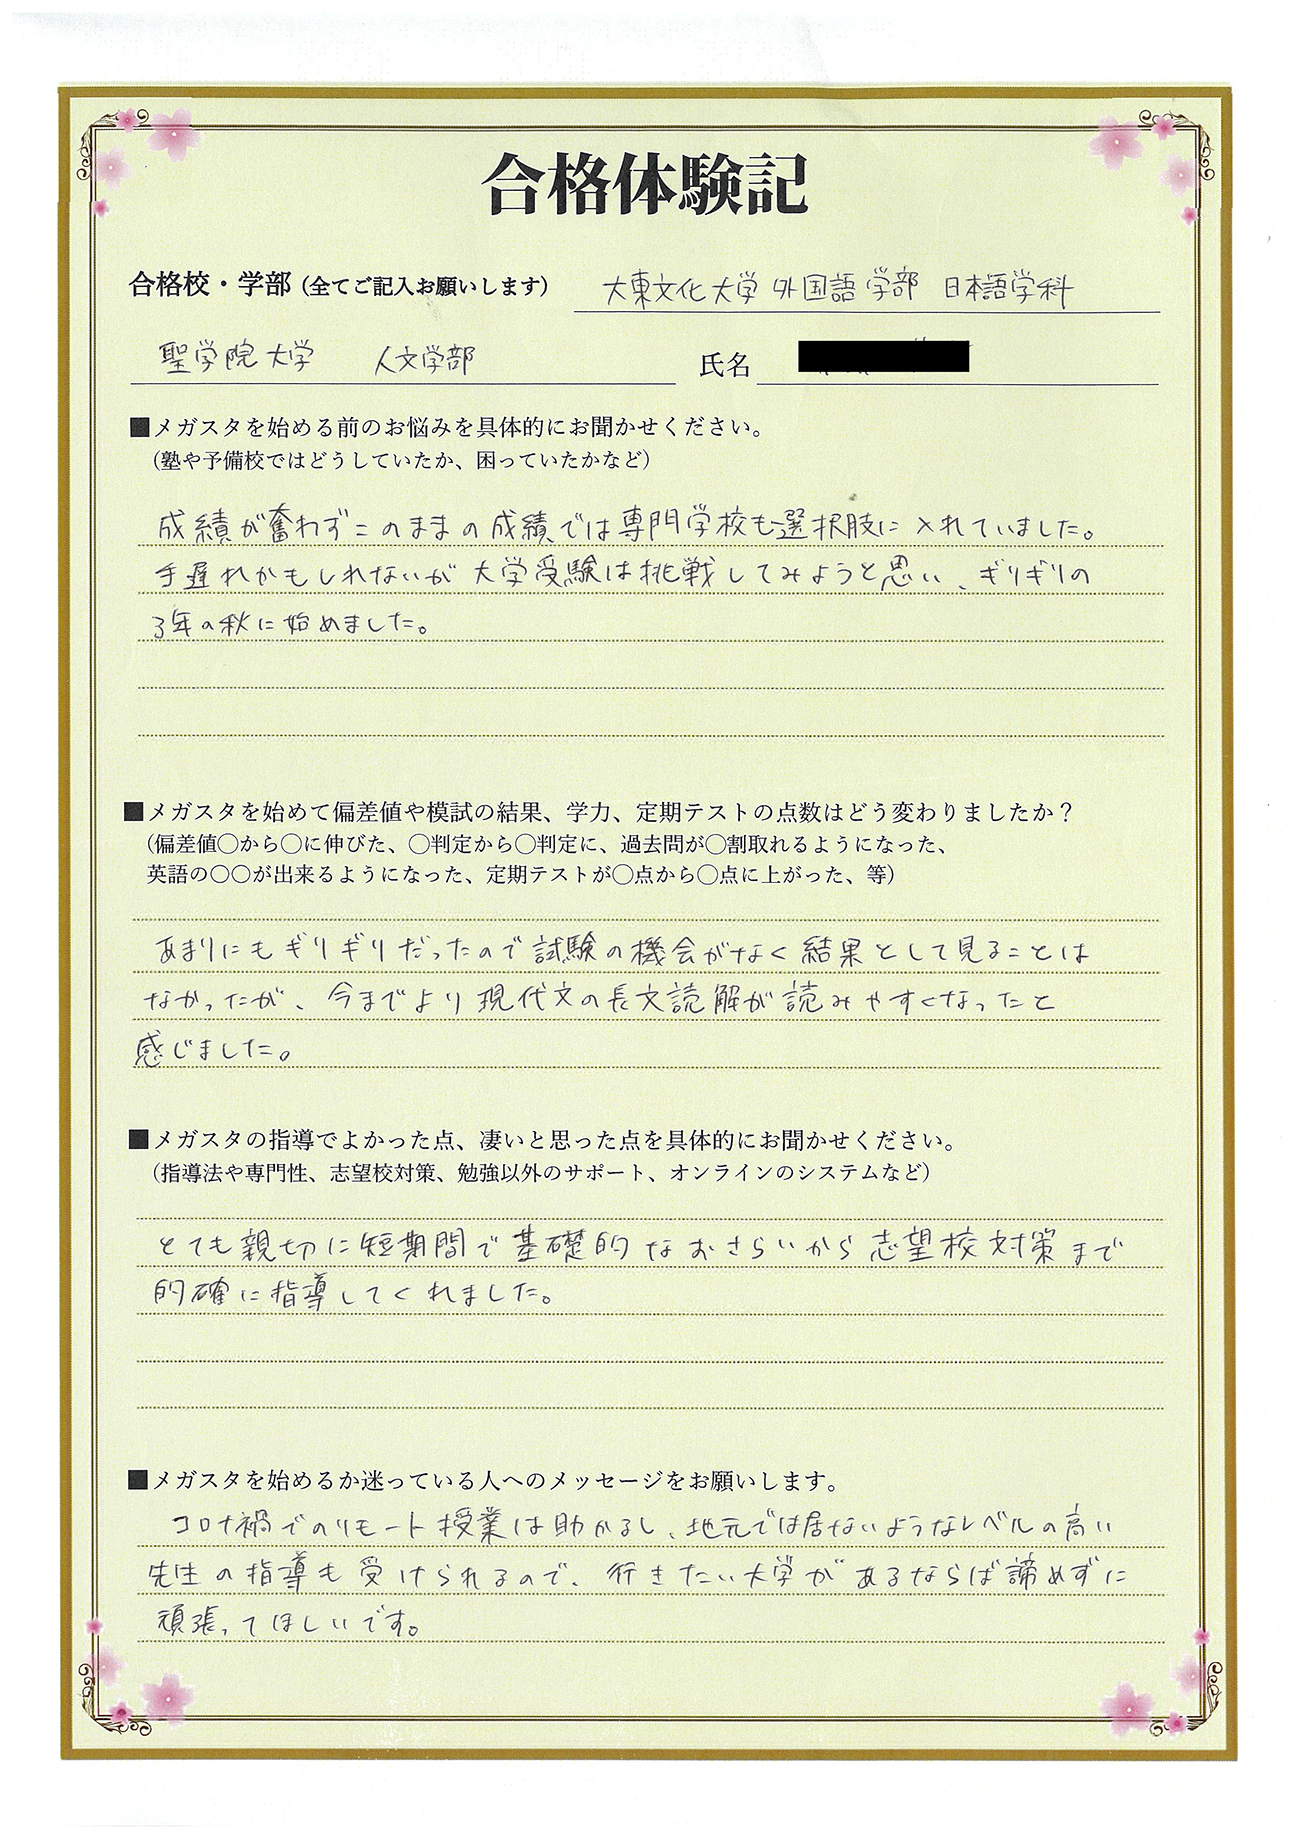 合格体験記
合格校・学部（全てご記入お願いします） 大東文化大学 外国語学部 日本語学科
聖学院大学 人文学部 氏名
■メガスタを始める前のお悩みを具体的にお聞かせください。
（塾や予備校ではどうしていたか、困っていたかなど）
成績が奮わずこのままの成績では専門学校も選択肢に入れていました。
手遅れかもしれないが大学受験は挑戦してみようと思い、ギリギリの
3年の秋に始めました。
■メガスタを始めて偏差値や模試の結果、学力、定期テストの点数はどう変わりましたか？
（偏差値〇から〇に伸びた、〇判定から〇判定に、過去問が〇割取れるようになった、
英語の〇〇が出来るようになった、定期テストが〇点から〇点に上がった、等）
あまりにもギリギリだったので試験の機会がなく結果として見ることは
なかったが、今までより現代文の長文読解が読みやすくなったと
感じました。
■メガスタの指導でよかった点、凄いと思った点を具体的にお聞かせください。
（指導法や専門性、志望校対策、勉強以外のサポート、オンラインのシステムなど）
とても親切に短期間で基礎的なおさらいから志望校対策まで
的確に指導してくれました。
■メガスタを始めるか迷っている人へのメッセージをお願いします。
コロナ禍でのリモート授業は助かるし、地元では居ないようなレベルの高い
先生の指導も受けられるので、行きたい大学があるならば諦めずに
頑張ってほしいです。